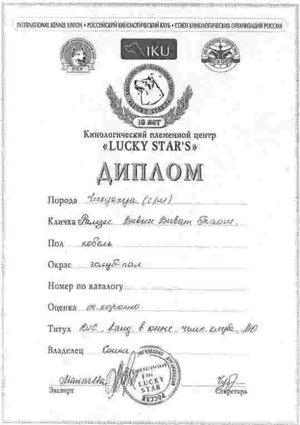 INTERNATIONAL KENNEL UNION • РОССИЙСКИЙ КИНОЛОГИЧЕСКИЙ КЛУБ • СОЮЗ КИНОЛОГИЧЕСКИХ ОРГАНИЗАЦИЙ РОССИИ
IKU
10 лет
Кинологический племенной центр
«LUCKY STAR'S»
ДИПЛОМ
Порода Чихуахуа (г/ш)
Кличка Рамзес Вивьен Виват
Пол кобель
Окрас голуб-пал
Номер по каталогу
Оценка оч. хорошо
Титул ЮЧС, канд. в юн
Владелец
LUCKY STAR
РОССИЯ
Эксперт Секретарь